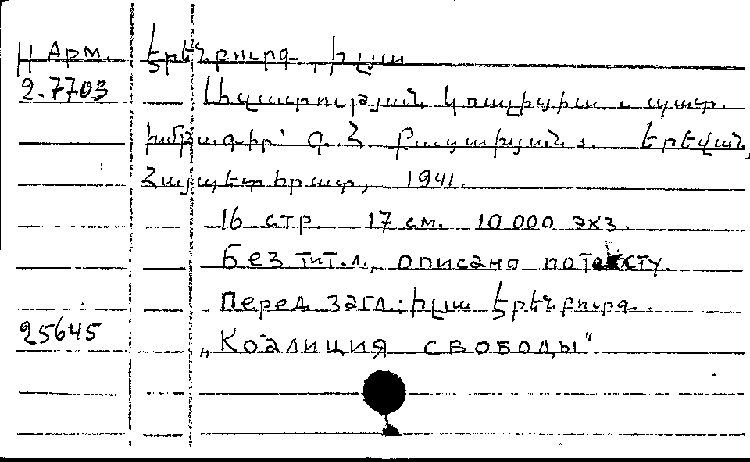 Арм. Էրենբուրգ, Իլյա
2.7703 Ազատության կոալիցիա
խմբագիր՝ Գ. Հ. Երեվան,
Հայպետհրատ, 1941.
16 стр. 17 см. 10 000 экз.
Без тит. л., описано по тексту.
Перед загл.: Իլյա Էրենբուրգ.
25645 „Коалиция свободы"